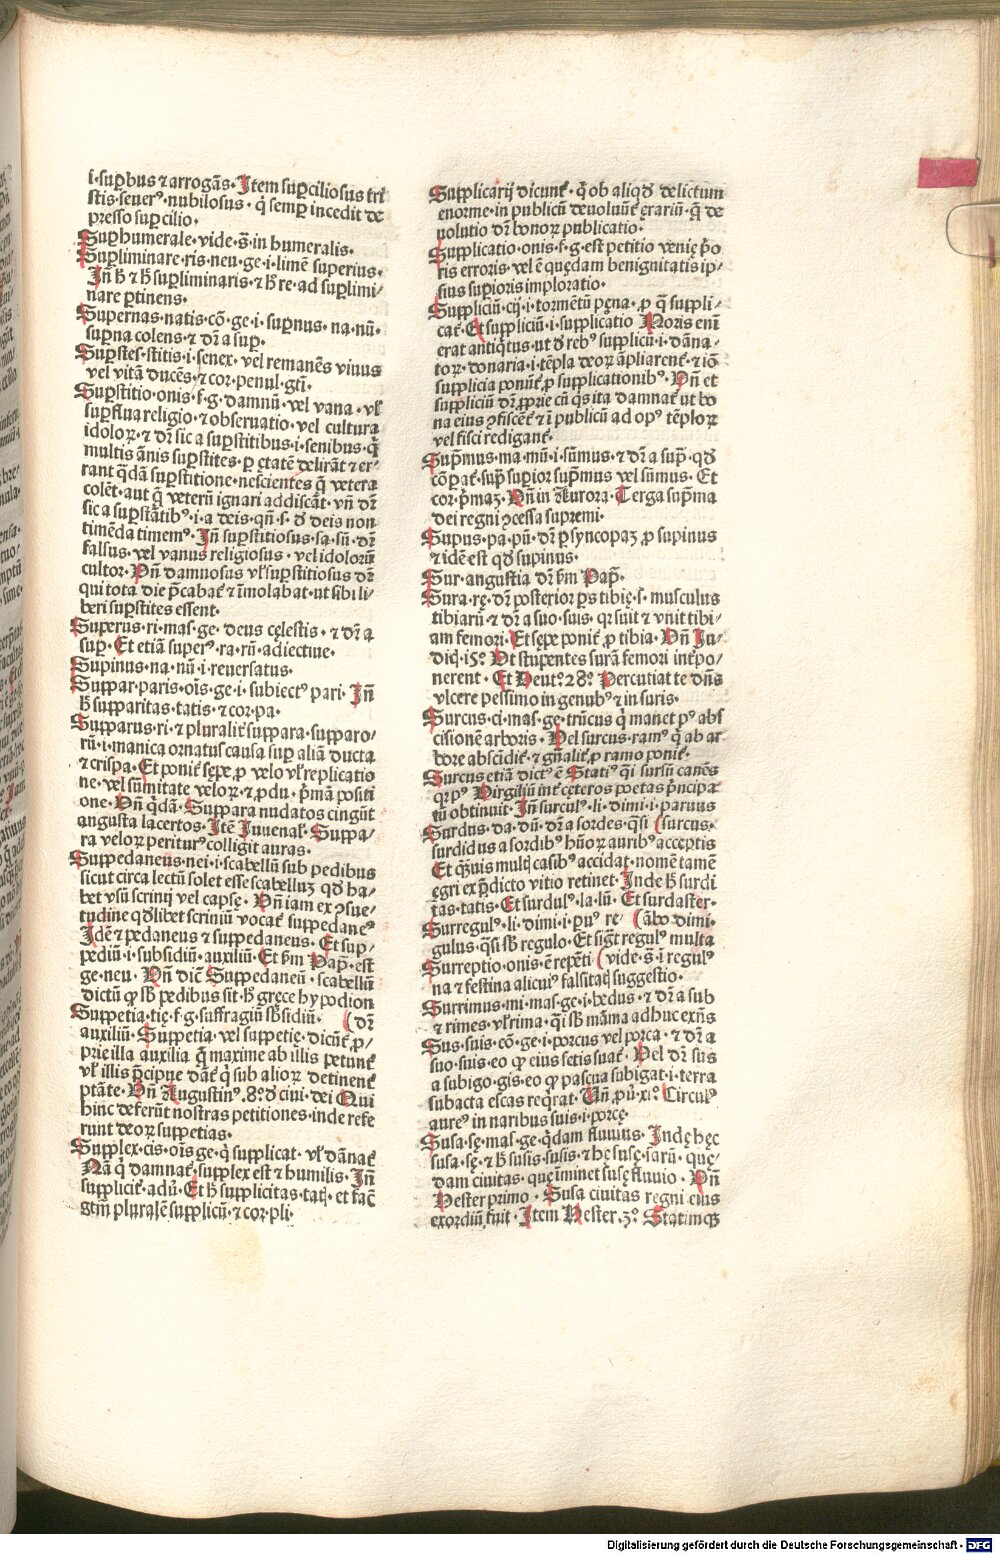 i·suꝑbus ⁊ arrogās· Item suꝑciliosus tri
stis·seuerꝰ·nubilosus· q̄ semꝑ incedit de
presso suꝑcilio·
Suꝑhumerale·vide·s̄·in humeralis·
Suꝑliminare·ris·neu·ge·i·limē superius·
In h̄ ⁊ h̄ suꝑliminaris·⁊ h̄ re·ad suꝑlimi⸗
nare ꝑtinens·
Supernas·natis·cō·ge·i·suꝑnus·na·nū·
suꝑna colens·⁊ dr̄ a suꝑ·
Suꝑstes·stitis·i·senex·vel remanēs viuus
vel vitā ducēs·⁊ cor·penul·gtī·
Suꝑstitio·onis·f·g·damnū·vel vana·vł
suꝑflua religio·⁊ obseruatio·vel cultura
idoloꝝ·⁊ dr̄ sic a suꝑstitibus·i·senibus·q̄
multis ānis suꝑstites·ꝑ ętatē delirāt ⁊ er⸗
rant q̄dā suꝑstitione·nescientes q̄ vetera
colēt·aut q̄ veterū ignari addiscāt·vn̄ dr̄
sic a suꝑstātibꝰ·i·a deis·qn̄·s·ꝺ deis non
timēda timemꝰ·In̄ suꝑstitiosus·sa·sū·dr̄
falsus·vel vanus religiosus·vel idolorū
cultor·Vn̄ damnosus vł suꝑstitiosus dr̄
qui tota die p̄cabat̄ ⁊ īmolabat·ut sibi li⸗
beri suꝑstites essent·
Superus·ri·mas·ge·deus cęlestis·⁊ dr̄ a
suꝑ·Et etiā superꝰ·ra·rū·adiectiue·
Supinus·na·nū·i·reuersatus·
Suppar·paris·oīs·ge·i·subiectꝰ pari·In̄
h̄ supparitas·tatis·⁊ cor·pa·
Supparus·ri·⁊ pluralit̄ suppara·supparo⸗
rū·i·manica ornatus causa suꝑ aliā ducta
⁊ crispa·Et ponit̄ sępe ꝓ velo vł replicatio
ne·vel sūmitate veloꝝ·⁊ ꝓdu·p̄mā positi
one·Vn̄ q̄dā·Suppara nudatos cingūt
angusta lacertos·Itē Iuuenal·Suppa⸗
ra veloꝝ periturꝰ colligit auras·
Suppedaneus·nei·i·scabellū sub pedibus
sicut circa lectū solet esse scabelluꝫ qꝺ ha⸗
bet vsū scrinij vel capsę·Vn̄ iam ex ꝯsue⸗
tudine qꝺlibet scriniū vocat̄ suppedaneꝰ
Idē ⁊ pedaneus ⁊ suppedaneus·Et sup⸗
pediū·i·subsidiū·auxiliū·Et s̄m Pap·est
ge·neu·Vn̄ dic̄ Suppedaneū·scabellū
dictū ꝙ sb̄ pedibus sit·h̄ grece hypodion
Suppetia·tię·f·g·suffragiū sb̄sidiū· (dr̄
auxiliū·Suppetia·vel suppetię·dicūt̄ ꝓ⸗
prie illa auxilia q̄ maxime ab illis petunt̄
vł illis p̄cipue dāt̄ q̄ sub alioꝝ detinent̄
ptāte·Vn̄ Augustinꝰ·8·ꝺ ciui·dei Qui
hinc deferūt nostras petitiones·inde refe
runt deoꝝ suppetias·
Supplex·cis·oīs·ge·q̄ supplicat·vł dānat̄
Nā q̄ damnat̄·supplex est ⁊ humilis·In̄
supplicit̄·adū·Et h̄ supplicitas·tatꝭ·et fac̄
gtm̄ pluralē supplicū·⁊ cor·pli·
Supplicarij dicunt̄·q̄ ob aliqꝺ delictum
enorme·in publicū deuoluūt̄ ęrariū·q̄ de
uolutio dr̄ bonoꝝ publicatio·
Supplicatio·onis·f·g·est petitio venię p̄o
ris erroris·vel ē quędam benignitatis ip⸗
sius suꝑioris imploratio·
Suppliciū·cij·i·tormētū pęna·ꝓ q̄ suppli⸗
cat̄·Et suppliciū·i·supplicatio Moris eni
erat antiq̄tus·ut ꝺ rebꝰ supplicū·i·dāna⸗
toꝝ·donaria·i·tēpla deoꝝ āpliarent̄·⁊ iō
supplicia ponūt̄ ꝓ supplicationibꝰ·Vn̄ et
suppliciū dr̄ ꝓprie cū q̄s ita damnat̄ ut bo
na eius ꝯfiscēt̄ ⁊ ī publicū ad opꝰ tēploꝝ
vel fisci redigant̄·
Sup̄mus·ma·mū·i·sūmus·⁊ dr̄ a sup̄·qꝺ
cōꝑat̄·sup̄ suꝑior sup̄mus vel sūmus·Et
cor·p̄maꝫ·Vn̄ in Aurora·Terga sup̄ma
dei regni ꝯcessa supremi·
Supus·pa·pū·dr̄ ꝑ syncopaꝫ ꝓ supinus
⁊ idē est qꝺ supinus·
Sur·angustia dr̄ s̄m Pap̄·
Sura·rę·dr̄ posterior ꝑs tibię·s·musculus
tibiarū·⁊ dr̄ a suo·suis·qꝛ suit ⁊ vnit tibi⸗
am femori·Et sępe ponit̄ ꝓ tibia·Vn̄ Iu⸗
diꝗ·15º Vt stupentes surā femori int̄po⸗
nerent·Et Deut̄º·28º·Percutiat te dn̄s
vlcere pessimo in genubꝰ ⁊ in suris·
Surcus·ci·mas·ge·trūcus q̄ manet pꝰ abs
cisionē arboris·Vel surcus·ramꝰ q̄ ab ar
bore abscidit̄·⁊ gn̄alit̄ ꝓ ramo ponit̄·
Surcus etiā dictꝰ ē Statiꝰ q̄i sursū canēs
qꝛ pꝰ Virgiliū int̄ cęteros poetas p̄ncipa
tū obtinuit·In̄ surculꝰ·li·dimi·i·paruus
Surdus·da·dū·dr̄ a sordes·q̄si (surcus·
surdidus a sordibꝰ hūoꝝ auribꝰ acceptis
Et q̄uis multꝭ casibꝰ accidat·nomē tamē
ęgri ex p̄dicto vitio retinet·Inde h̄ surdi
tas·tatis·Et surdulꝰ·la·lū·Et surdaster·
Surregulꝰ·li·dimi·i·ꝑuꝰ re⸗ (ābo dimi·
gulus·q̄si sb̄ regulo·Et sigt̄ regulꝰ multa
Surreptio·onis·ē repēti (vide·s̄·ī regulꝰ
na ⁊ festina alicuiꝰ falsitatꝭ suggestio·
Surrimus·mi·mas·ge·i·hędus·⁊ dr̄ a sub
⁊ rimes·vł rima·q̄i sb̄ māma adhuc exn̄s
Sus·suis·cō·ge·i·porcus vel porca·⁊ dr̄ a
suo·suis·eo ꝙ eius setis suat̄·Vel dr̄ sus
a subigo·gis·eo ꝙ pascua subigat·i·terra
subacta escas req̄rat·Vn̄·ꝓū·xiº·Circulꝰ
aureꝰ in naribus suis·i·porcę·
Susa·sę·mas·ge·q̄dam fluuius·Indę hęc
susa·sę·⁊ h̄ susis·susis·⁊ hę susę·sarū·quę⸗
dam ciuitas·quę īminet susę fluuio·Vn̄
Hester primo·Susa ciuitas regni eius
exordiū fuit·Item Hester·3º·Statimqꝫ
Digitalisierung gefördert durch die Deutsche Forschungsgemeinschaft - DFG